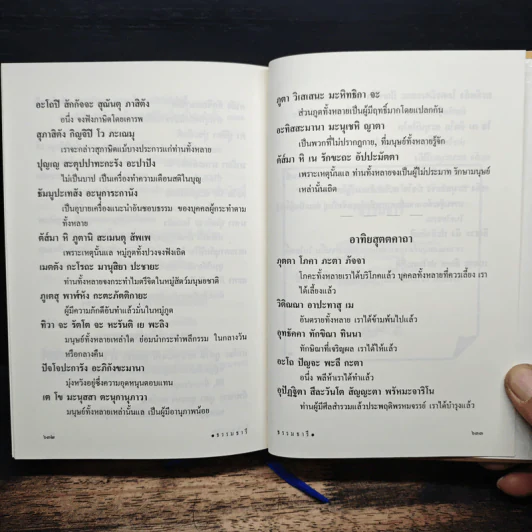 อะโถปิ สักกัจจะ สุณันตุ ภาสิตัง
อนึ่ง จงฟังภาษิตโดยเคารพ
สุภาสิตัง กิญจิปิ โว ภะเณมุ
เราจะกล่าวสุภาษิตแม้บางประการแก่ท่านทั้งหลาย
ปุญเญ สะตุปปาทะกะรัง อะปาปัง
ไม่เป็นบาป เป็นเครื่องทำความเตือนสติในบุญ
ธัมมูปะเทสัง อะนุการะกานัง
เป็นอุบายเครื่องแนะนำอันชอบธรรม ของบุคคลผู้กระทำตาม
ทั้งหลาย
ตัสมา หิ ภูตานิ สะเมนตุ สัพเพ
เพราะเหตุนั้นแล หมู่ภูตทั้งปวงจงฟังเถิด
เมตตัง กะโรถะ มานุสิยา ปะชายะ
ท่านทั้งหลายจงกระทำไมตรีจิตในหมู่สัตว์มนุษยชาติ
ภูเตสุ พาฬ๎หัง กะตะภัตติกายะ
ผู้มีความภักดีอันทำแล้วมั่นในหมู่ภูต
ทิวา จะ รัตโต จะ หะรันติ เย พะลิง
มนุษย์ทั้งหลายเหล่าใด ย่อมนำกระทำพลีกรรม ในกลางวัน
หรือกลางคืน
ปัจโจปะการัง อะภิกังขะมานา
มุ่งหวังอยู่ซึ่งความอุดหนุนตอบแทน
เต โข มะนุสสา ตะนุกานุภาวา
มนุษย์ทั้งหลายเหล่านั้นแล เป็นผู้มีอานุภาพน้อย
ธรรมจารี
ภูตา วิเสเสนะ มะหิทธิกา จะ
ส่วนภูตทั้งหลายเป็นผู้มีฤทธิ์มากโดยแปลกกัน
อะทิสสะมานา มะนุเชหิ ญาตา
เป็นพวกที่ไม่ปรากฏกาย, ที่มนุษย์ทั้งหลายรู้จัก
ตัส๎มา หิ เน รักขะถะ อัปปะมัตตา
เพราะเหตุนั้นแล ท่านทั้งหลายจงเป็นผู้ไม่ประมาท รักษามนุษย์
เหล่านั้นเถิด
อาทิยสุตตคาถา
ภุตตา โภคา ภะตา ภัจจา
โภคะทั้งหลายเราได้บริโภคแล้ว บุคคลทั้งหลายที่ควรเลี้ยง เรา
ได้เลี้ยงแล้ว
วิติณณา อาปะทาสุ เม
อันตรายทั้งหลาย เราได้ข้ามพ้นไปแล้ว
อุทธัคคา ทักขิณา ทินนา
ทักษิณาที่เจริญผล เราได้ให้แล้ว
อะโถ ปัญจะ พะลี กะตา
อนึ่ง พลีห้าเราได้ทำแล้ว
อุปัฏฐิตา สีละวันโต สัญญะตา พรัหมะจาริโน
ท่านผู้มีศีลสำรวมแล้วประพฤติพรหมจรรย์ เราได้บำรุงแล้ว
ธรรมจารี